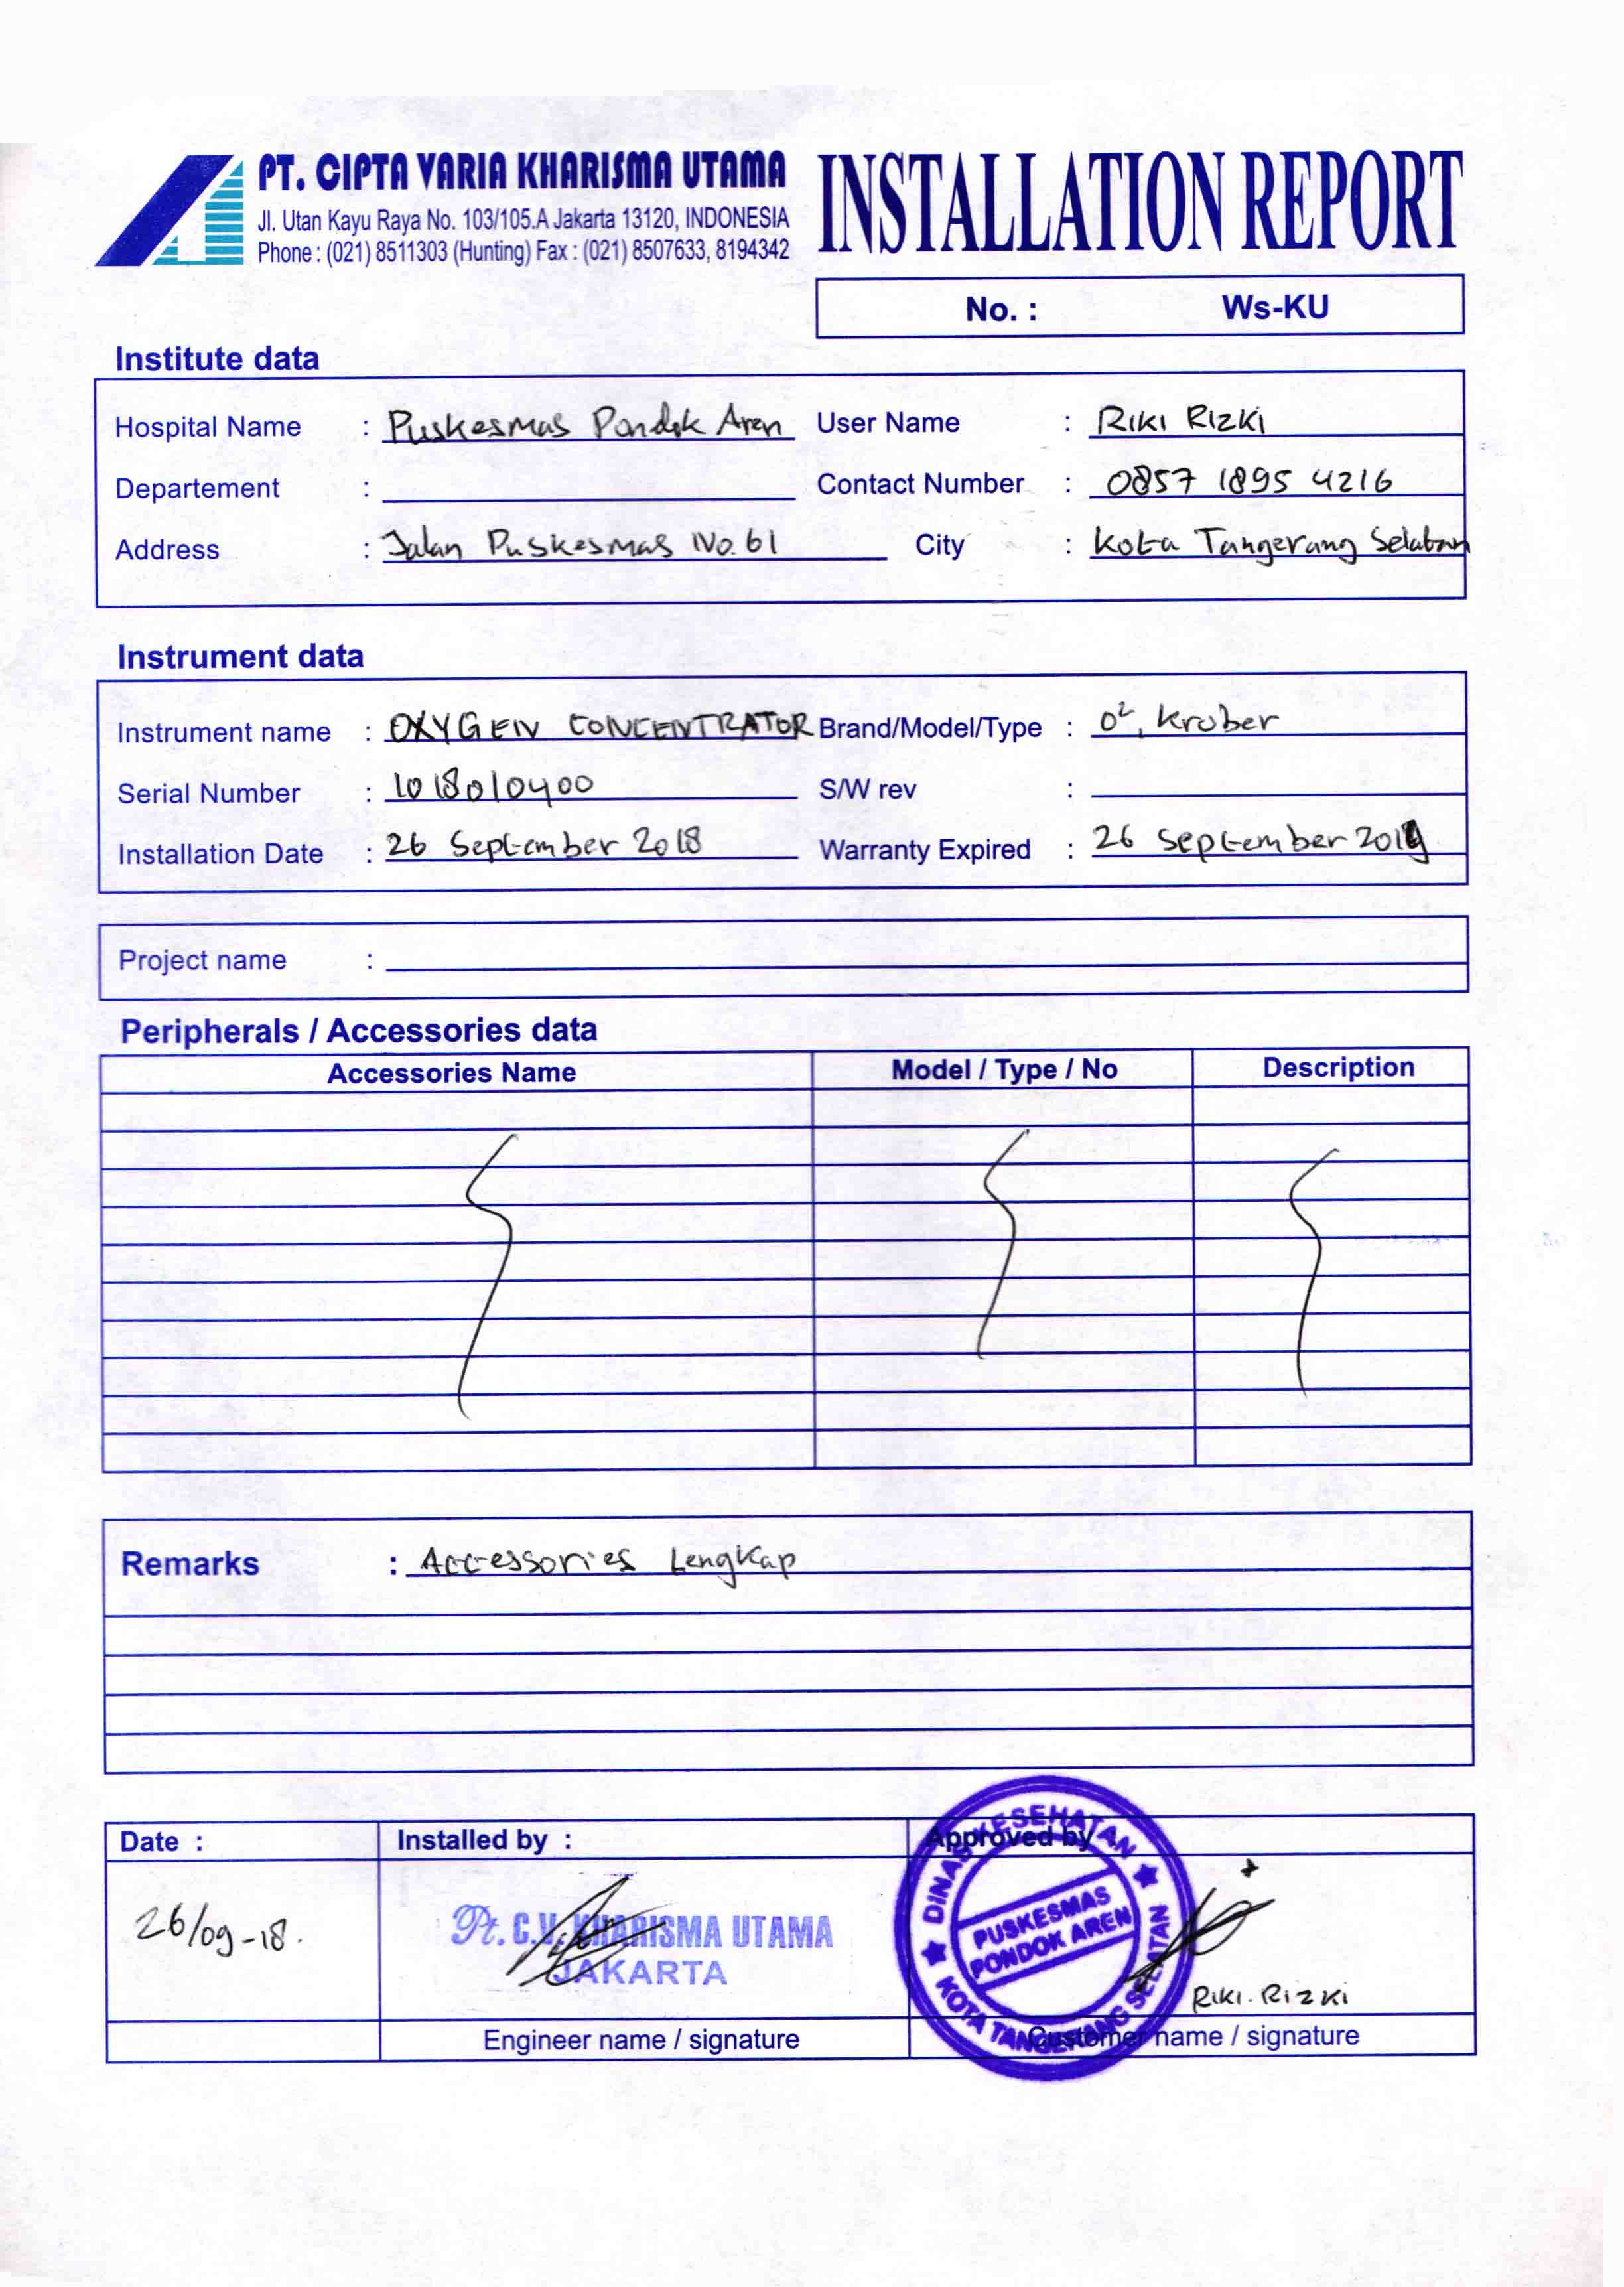 PT. CIPTA VARIA KHARISMA UTAMA
Jl. Utan Kayu Raya No. 103/105.A Jakarta 13120, INDONESIA
Phone : (021) 8511303 (Hunting) Fax : (021) 8507633, 8194342
INSTALLATION REPORT
No. : Ws-KU
Institute data
Hospital Name : Puskesmas Pondok Aren User Name : RIKI RIZKI
Departement : Contact Number : 0857 1895 4216
Address : Jalan Puskesmas No. 61 City : Kota Tangerang Selatan
Instrument data
Instrument name : OXYGEN CONCENTRATOR Brand/Model/Type : O², Krober
Serial Number : 1018010400 S/W rev :
Installation Date : 26 September 2018 Warranty Expired : 26 September 2019
Project name :
Peripherals / Accessories data
Accessories Name Model / Type / No Description
Remarks : Accessories Lengkap
Date : Installed by : Approved by
26/09-18.
Pt. C.V. KHARISMA UTAMA
JAKARTA
DINAS KESEHATAN
PUSKESMAS
PONDOK AREN
KOTA TANGERANG SELATAN
RIKI. RIZKI
Engineer name / signature Customer name / signature